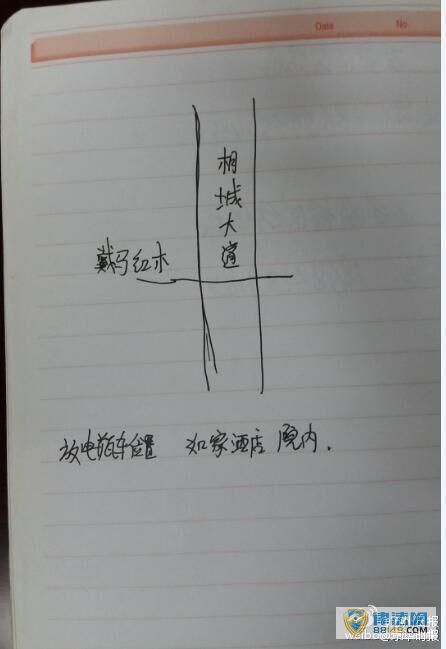 Date No.
相城大道
戴玛红木
放电瓶车位置 如家酒店 院内.
律法网